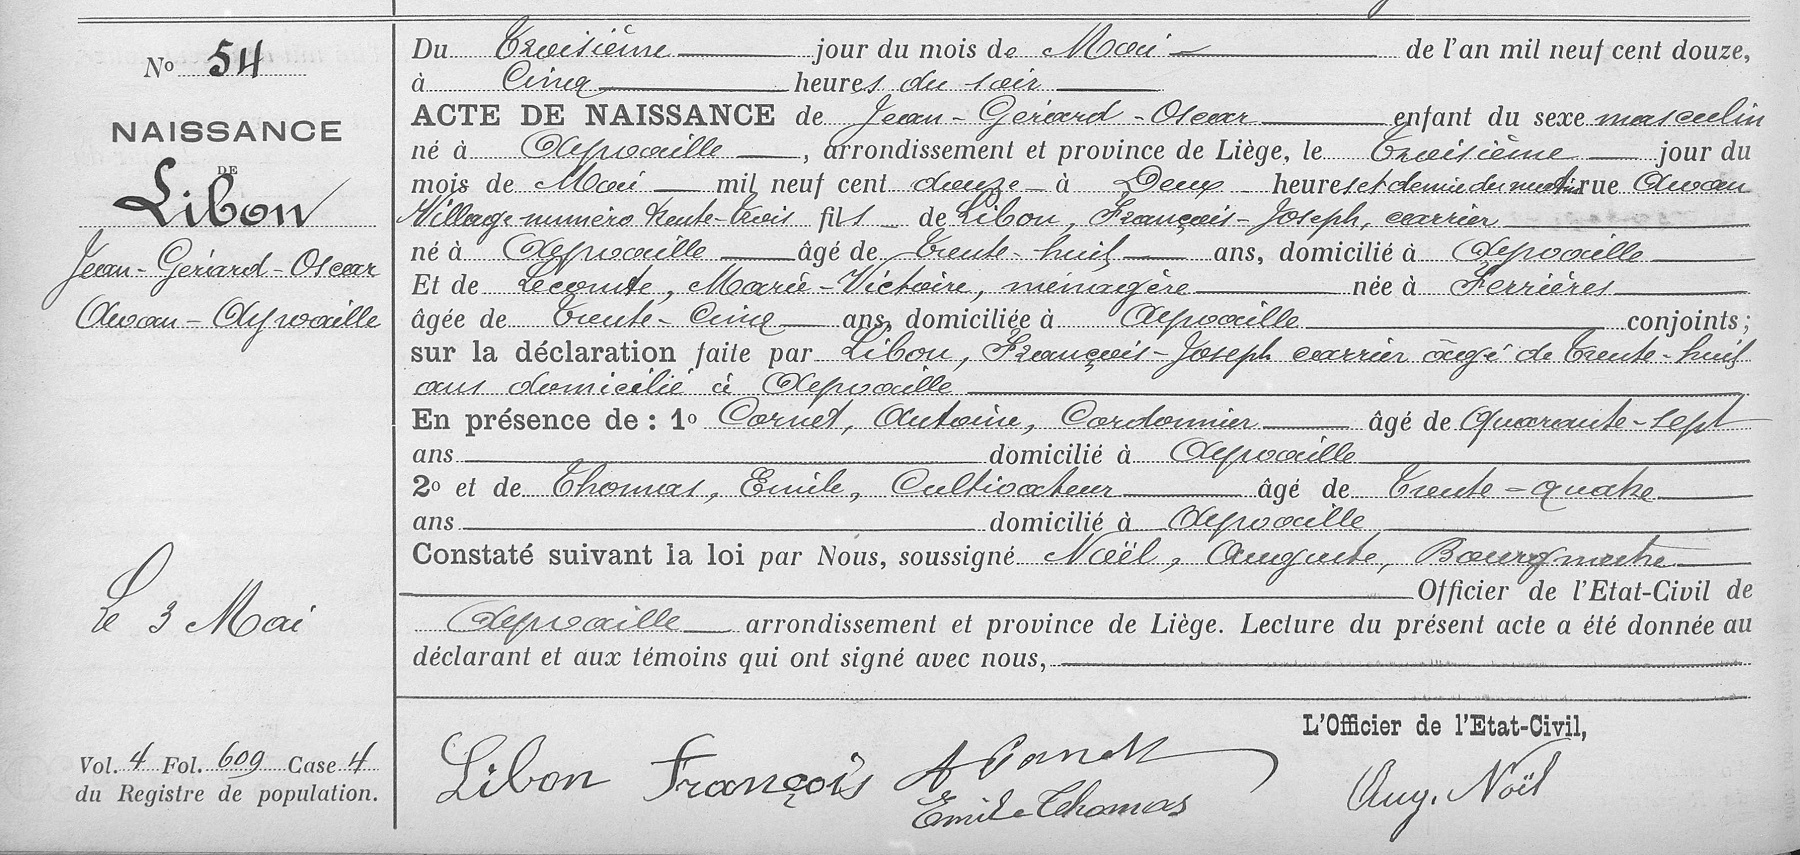 No 54
NAISSANCE
DE
Libon
Jean-Gérard-Oscar
Awan-Aywaille
Le 3 Mai
Vol. 4 Fol. 609 Case 4
du Registre de population.
Du Troisième jour du mois de Mai de l'an mil neuf cent douze,
à Cinq heures du soir
ACTE DE NAISSANCE de Jean-Gérard-Oscar enfant du sexe masculin
né à Aywaille, arrondissement et province de Liège, le Troisième jour du
mois de Mai mil neuf cent douze à Deux heures et demie du matin rue Awan
Village numéro trente-trois fils de Libon, François-Joseph, carrier
né à Aywaille âgé de trente-huit ans, domicilié à Aywaille
Et de Lecomte, Marie-Victoire, ménagère née à Ferrières
âgée de trente-cinq ans, domiciliée à Aywaille conjoints;
sur la déclaration faite par Libon, François-Joseph carrier âgé de trente-huit
ans domicilié à Aywaille
En présence de : 1o Cornet, Antoine, Cordonnier âgé de quarante-sept
ans domicilié à Aywaille
2o et de Thomas, Emile, Cultivateur âgé de trente-quatre
ans domicilié à Aywaille
Constaté suivant la loi par Nous, soussigné Noël, Auguste, Bourgmestre
Officier de l'Etat-Civil de
Aywaille arrondissement et province de Liège. Lecture du présent acte a été donnée au
déclarant et aux témoins qui ont signé avec nous,
L'Officier de l'Etat-Civil,
Libon François A Cornet
Emile Thomas
Aug. Noël